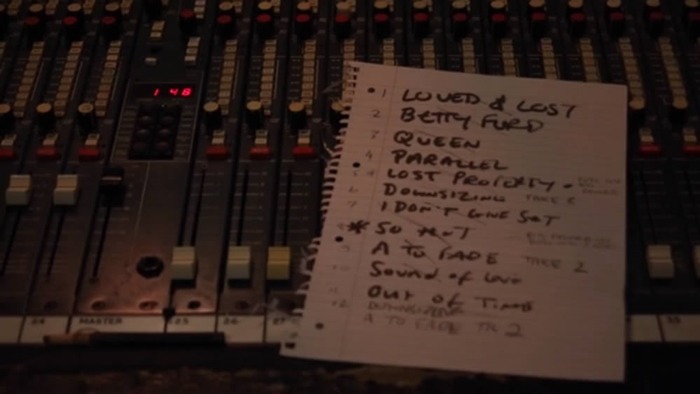 1 48
1 LOVED & LOST
2 BETTY FORD
3 QUEEN
4 PARALLEL
5 LOST PROPERTY
6 DOWNSIZING TAKE
7 I DON'T GIVE
* SO HOT
A TO FADE TAKE 2
SOUND OF LOVE
OUT OF TIME
12 DOWNSIZING
A TO FADE TK 2
24 MASTER 25 26 27